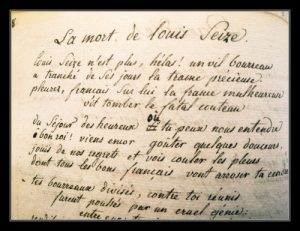 La mort de Louis Seize.
Louis Seize n'est plus, hélas! un vil bourreau
a tranché de ses jours la trame précieuse
pleurez, français sur lui la france malheureuse
vit tomber le fatal couteau
ou
du Séjour des heureux tu peux nous entendre
ô bon roi! viens encor gouter quelques douceurs,
jouis de nos regrets et vois couler les pleurs
dont tous les bons français vont arroser ta cendre
tes bourreaux divisés, contre toi réunis
furent poussés par un cruel génie:
entre